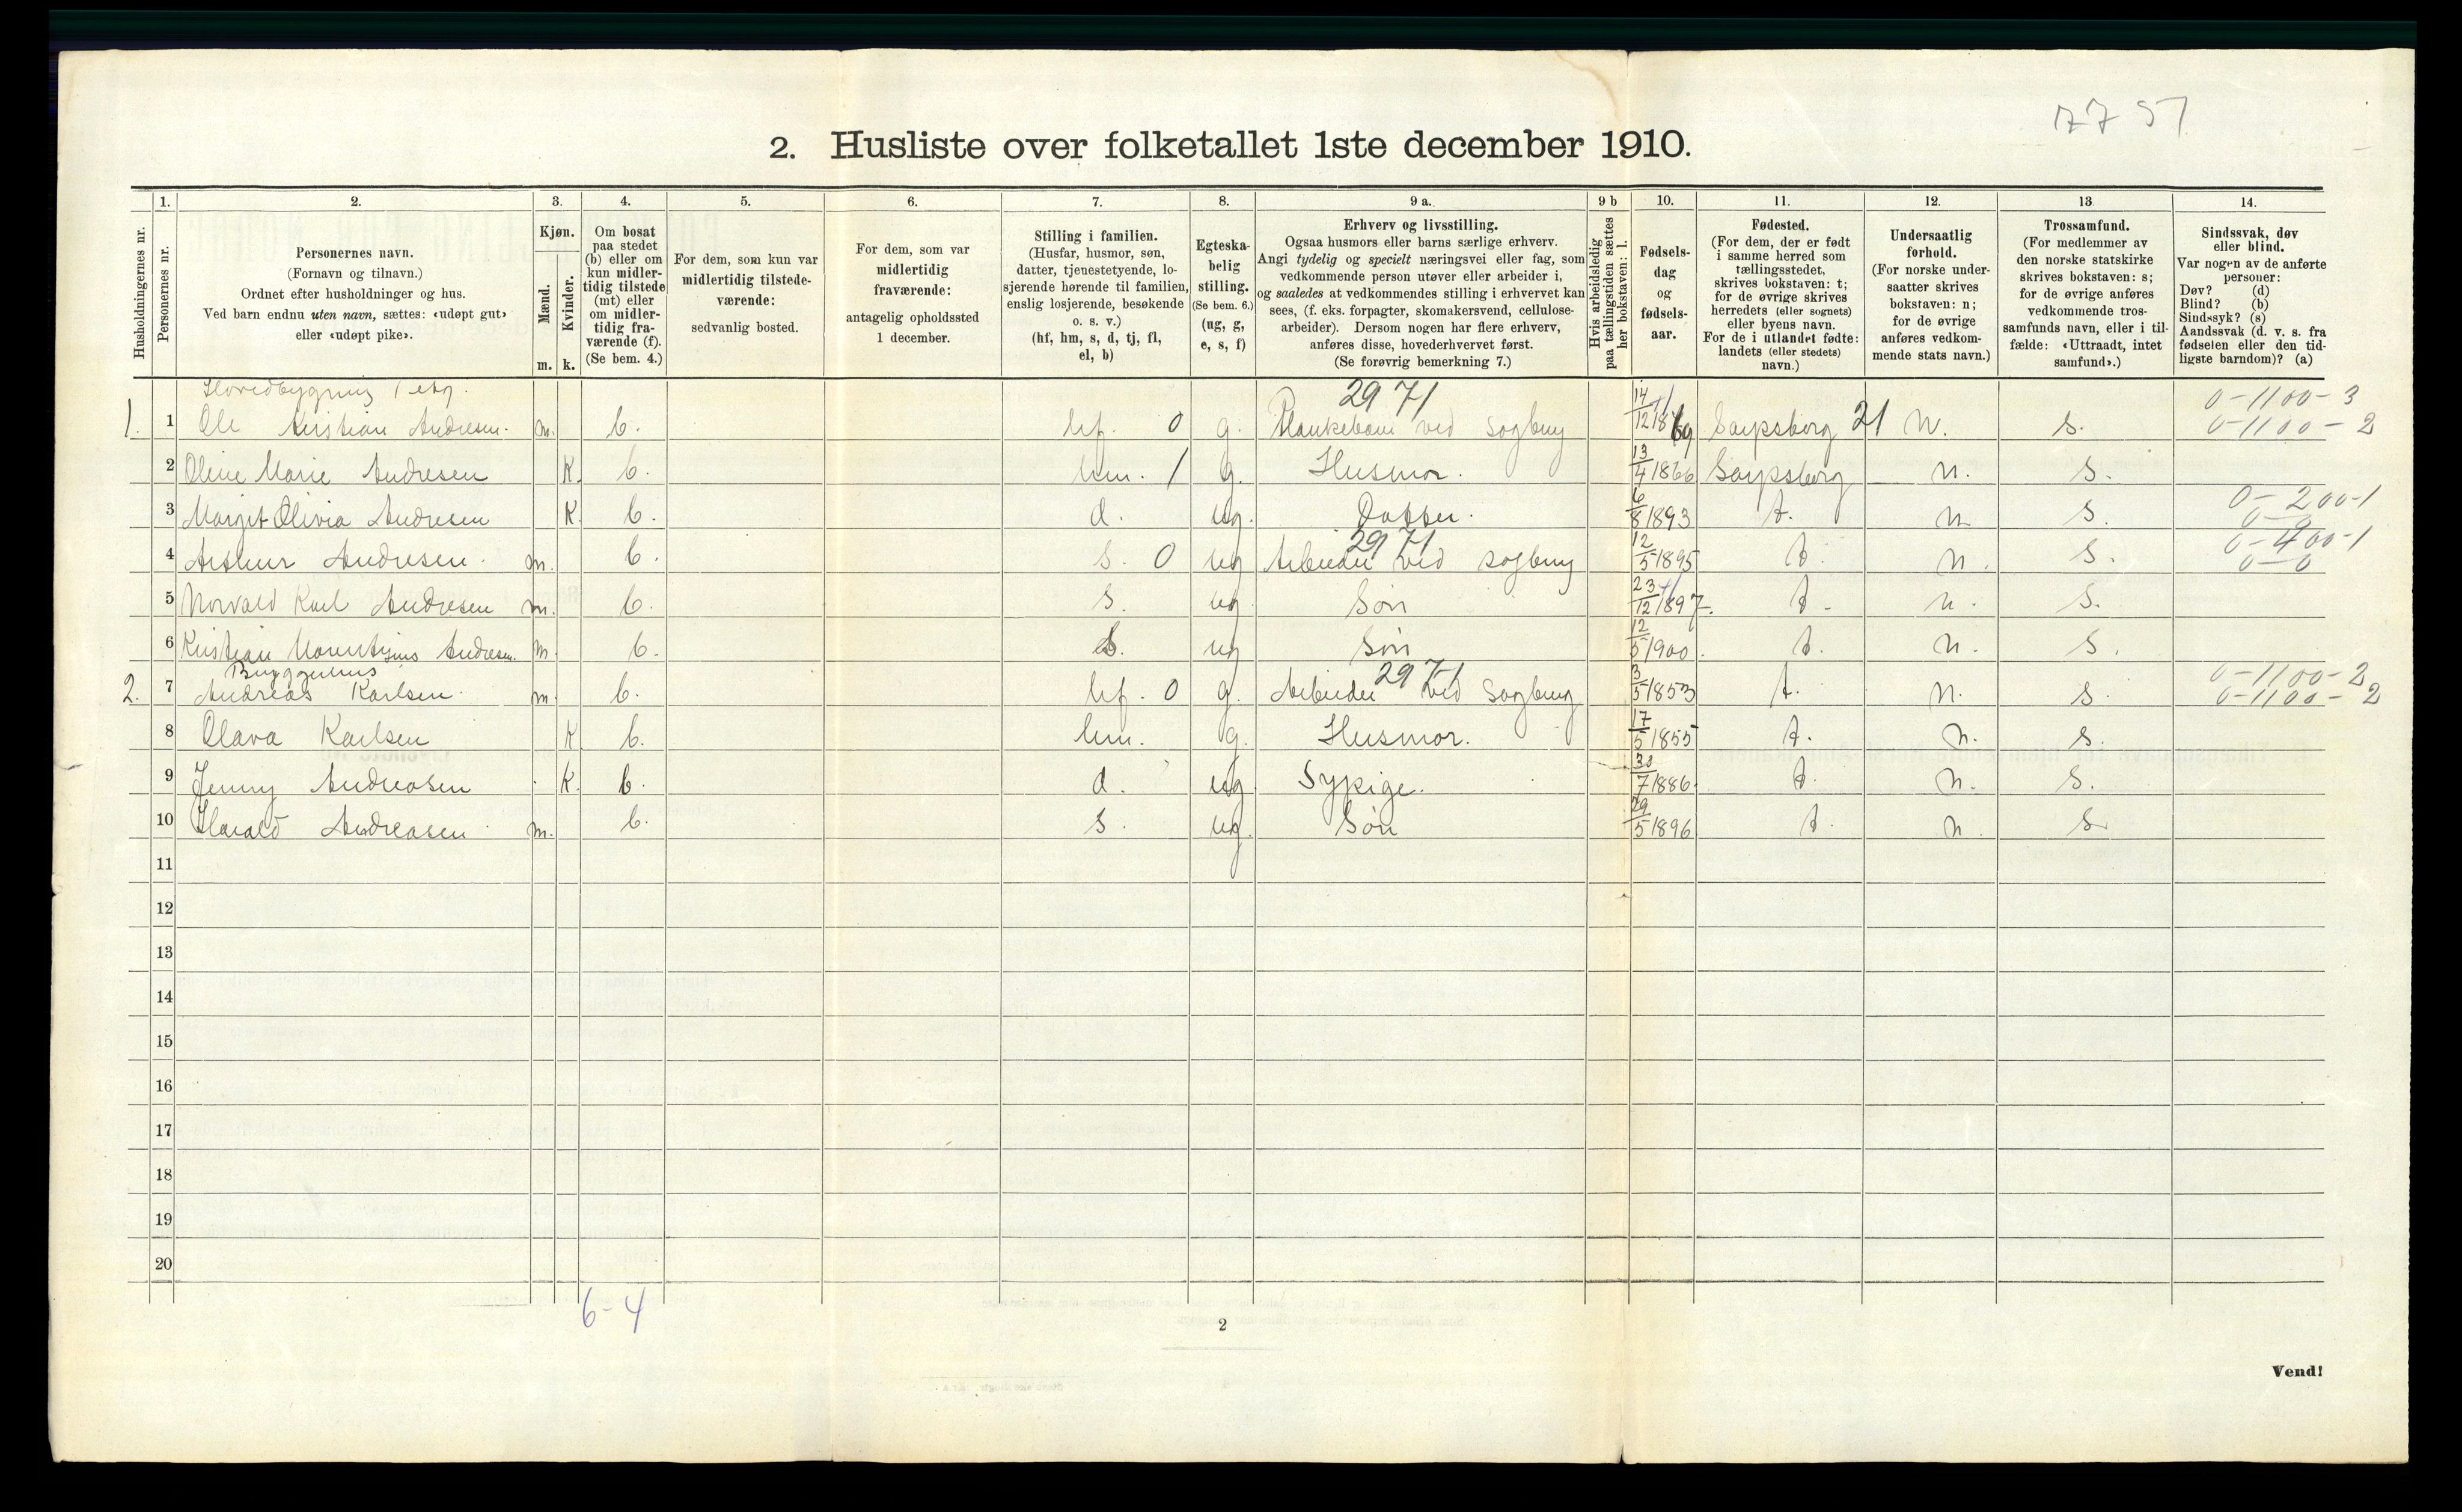 77 57
2. Husliste over folketallet 1ste december 1910.
Husholdningernes nr.
1.
Personernes nr.
2.
Personernes navn.
(Fornavn og tilnavn.)
Ordnet efter husholdninger og hus.
Ved barn endnu uten navn, sættes: «udøpt gut»
eller «udøpt pike».
3.
Kjøn.
Mænd.
m.
Kvinder.
k.
4.
Om bosat
paa stedet
(b) eller om
kun midler-
tidig tilstede
(mt) eller
om midler-
tidig fra-
værende (f).
(Se bem. 4.)
5.
For dem, som kun var
midlertidig tilstede-
værende:
sedvanlig bosted.
6.
For dem, som var
midlertidig
fraværende:
antagelig opholdssted
1 december.
7.
Stilling i familien.
(Husfar, husmor, søn,
datter, tjenestetyende, lo-
sjerende hørende til familien,
enslig losjerende, besøkende
o. s. v.)
(hf, hm, s, d, tj, fl,
el, b)
8.
Egteska-
belig
stilling.
(Se bem. 6.)
(ug, g,
e, s, f)
9 a.
Erhverv og livsstilling.
Ogsaa husmors eller barns særlige erhverv.
Angi tydelig og specielt næringsvei eller fag, som
vedkommende person utøver eller arbeider i,
og saaledes at vedkommendes stilling i erhvervet kan
sees, (f. eks. forpagter, skomakersvend, cellulose-
arbeider). Dersom nogen har flere erhverv,
anføres disse, hovederhvervet først.
(Se forøvrig bemerkning 7.)
9 b
Hvis arbeidsledig
paa tællingstiden sættes
her bokstaven: l.
10.
Fødsels-
dag
og
fødsels-
aar.
11.
Fødested.
(For dem, der er født
i samme herred som
tællingsstedet,
skrives bokstaven: t;
for de øvrige skrives
herredets (eller sognets)
eller byens navn.
For de i utlandet fødte:
landets (eller stedets)
navn.)
12.
Undersaatlig
forhold.
(For norske under-
saatter skrives
bokstaven: n;
for de øvrige
anføres vedkom-
mende stats navn.)
13
Trossamfund.
(For medlemmer av
den norske statskirke
skrives bokstaven: s;
for de øvrige anføres
vedkommende tros-
samfunds navn, eller i til-
fælde: «Uttraadt, intet
samfund».)
14.
Sindssvak, døv
eller blind.
Var nogen av de anførte
personer:
Døv? (d)
Blind? (b)
Sindssyk? (s)
Aandssvak (d. v. s. fra
fødselen eller den tid-
ligste barndom)? (a)
Hovedbygning 1 etg. 2971 0-1100-3
1. 1 Ole Kristian Andresen. m. b. hf. 0 g. Plankebærer ved sagbrug 14/12 1869 Sarpsborg 21 n. s. 0-1100-2
2 Oline Marie Andresen K. b. hm. 1 g. Husmor. 13/4 1866 Sarpsborg n. s.
3 Margit Olivia Andresen K. b. d. ug. Datter. 6/8 1893 t. n s. 0-200-1
4 Arthur Andresen. m. b. s. 0 ug 2971 Arbeider ved sagbrug 12/5 1895 t. n. s. 0-400-1 0-0
5 Norvald Karl Andresen m. b. s. ug Søn 23/12 1897. t. n. s.
6 Kristian Andresen. m. b. s. ug Søn 12/5 1900. t. n. s.
Bryggerhus 2971 0-1100-2
2. 7 Andreas Karlsen. m. b. hf. 0 g. Arbeider ved sagbrug 3/5 1853 t. n. s. 0-1100-2
8 Olava Karlsen K b. hm. g. Husmor. 17/5 1855 t. n. s.
9 Jenny Andreasen K. b. d. ug Sypige. 30/7 1886. t. n. s.
10 Harald Andreasen m. b. s. ug. Søn 29/5 1896 t. n. s
11
12
13
14
15
16
17
18
19
20
6-4
2
Vend!